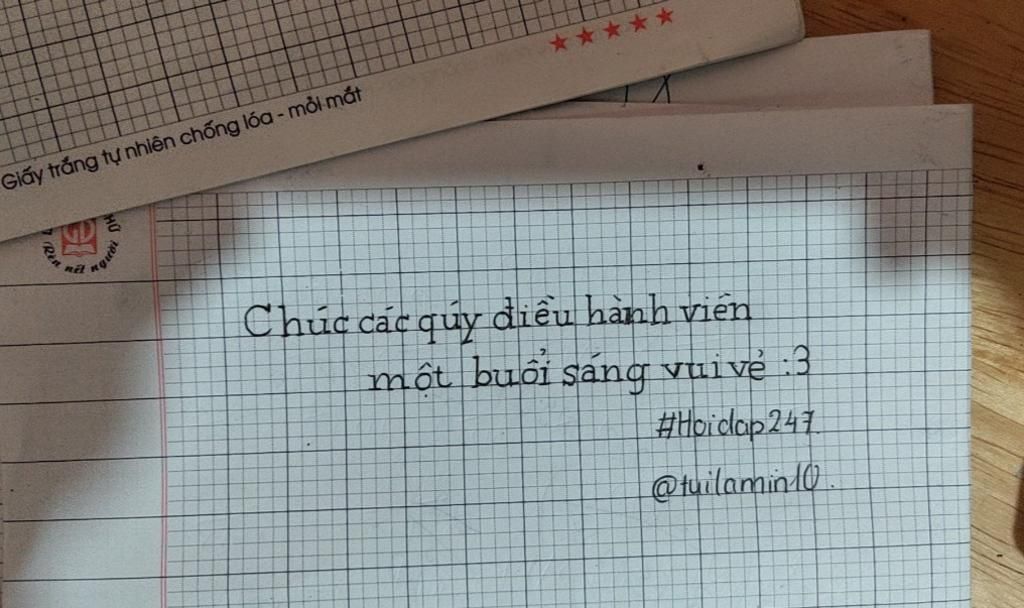 Giấy trắng tự nhiên chống lóa - mỏi mắt
Rèn nết người
Chúc các qúy điều hành viên
một buổi sáng vui vẻ :3
#Hoidap247.
@tuilamin10.